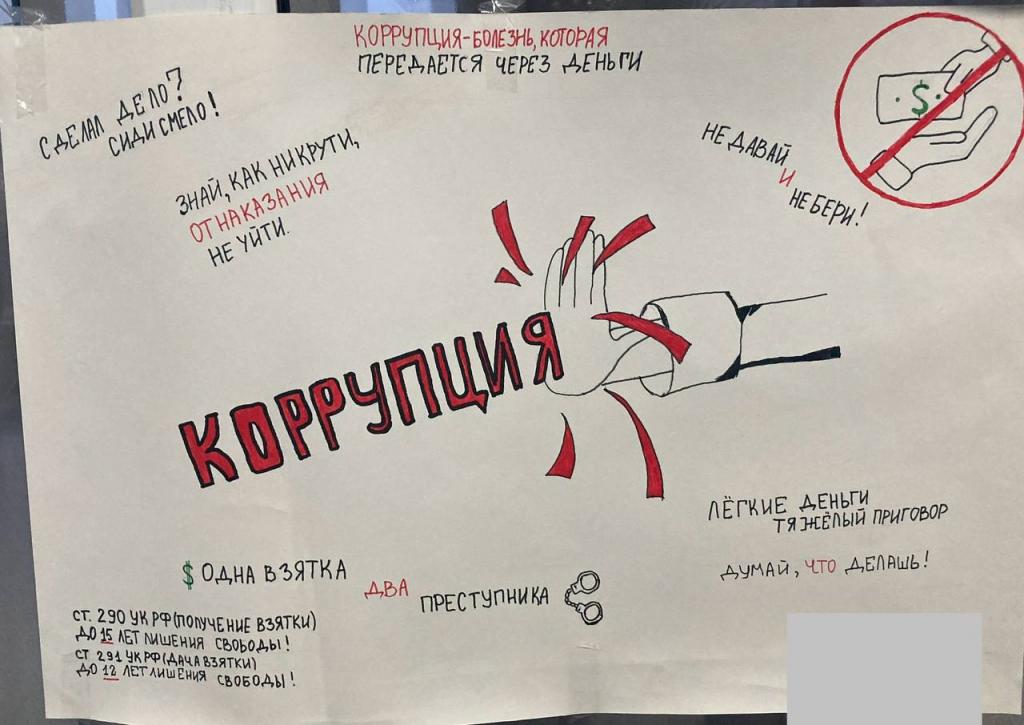 КОРРУПЦИЯ-БОЛЕЗНЬ, КОТОРАЯ
ПЕРЕДАЕТСЯ ЧЕРЕЗ ДЕНЬГИ
СДЕЛАЛ ДЕЛО?
СИДИ СМЕЛО!
ЗНАЙ, КАК НИ КРУТИ,
ОТ НАКАЗАНИЯ
НЕ УЙТИ.
$
НЕ ДАВАЙ
И
НЕ БЕРИ!
КОРРУПЦИЯ
ЛЁГКИЕ ДЕНЬГИ
ТЯЖЁЛЫЙ ПРИГОВОР
ДУМАЙ, ЧТО ДЕЛАШЬ!
$ ОДНА ВЗЯТКА
ДВА ПРЕСТУПНИКА
СТ. 290 УК РФ (ПОЛУЧЕНИЕ ВЗЯТКИ)
ДО 15 ЛЕТ ЛИШЕНИЯ СВОБОДЫ!
СТ 291 УК РФ (ДАЧА ВЗЯТКИ)
ДО 12 ЛЕТ ЛИШЕНИЯ СВОБОДЫ!